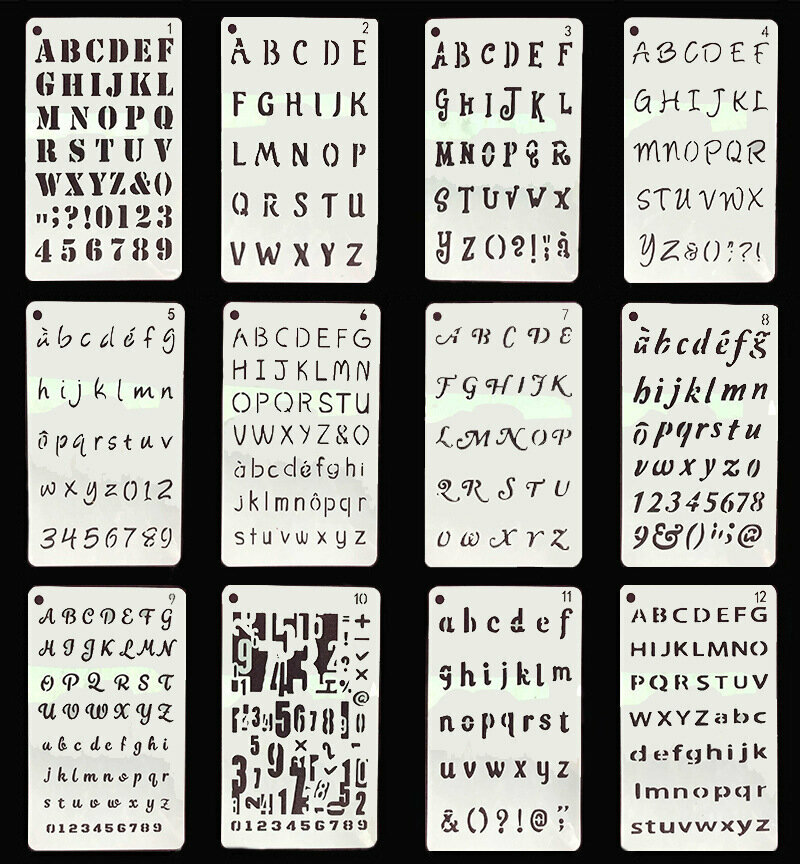 1
ABCDEF
GHIJKL
MNOPQ
RSTUV
WXYZ&()
";?!0123
456789
2
ABCDE
FGHIJK
LMNOP
QRSTU
VWXYZ
3
ABCDEF
GHIJKL
MNOPQR
STUVWX
YZ()?!";à
4
ABCDEF
GHIJKL
MNOPQR
STUVWX
YZ&()";?!
5
àbcdéfg
hijklmn
ôpqrstuv
wxyz012
3456789
6
ABCDEFG
HIJKLMN
OPQRSTU
VWXYZ&()
àbcdéfghi
jklmnôpqr
stuvwxyz
7
ABCDE
FGHIJK
LMNOP
QRSTU
VWXYZ
8
àbcdéfg
hijklmn
ôpqrstu
vwxyz0
12345678
9&()!";@
9
ABCDEFG
HIJKLMN
OPQRST
UVWXYZ
abcdefghi
jklmnopqr
stuvwxyz
0123456789
10
0123456789
11
abcdef
ghijklm
nopqrst
uvwxyz
&()?!@;
12
ABCDEFG
HIJKLMNO
PQRSTUV
WXYZabc
defghijk
lmnopqr
stuvwxyz